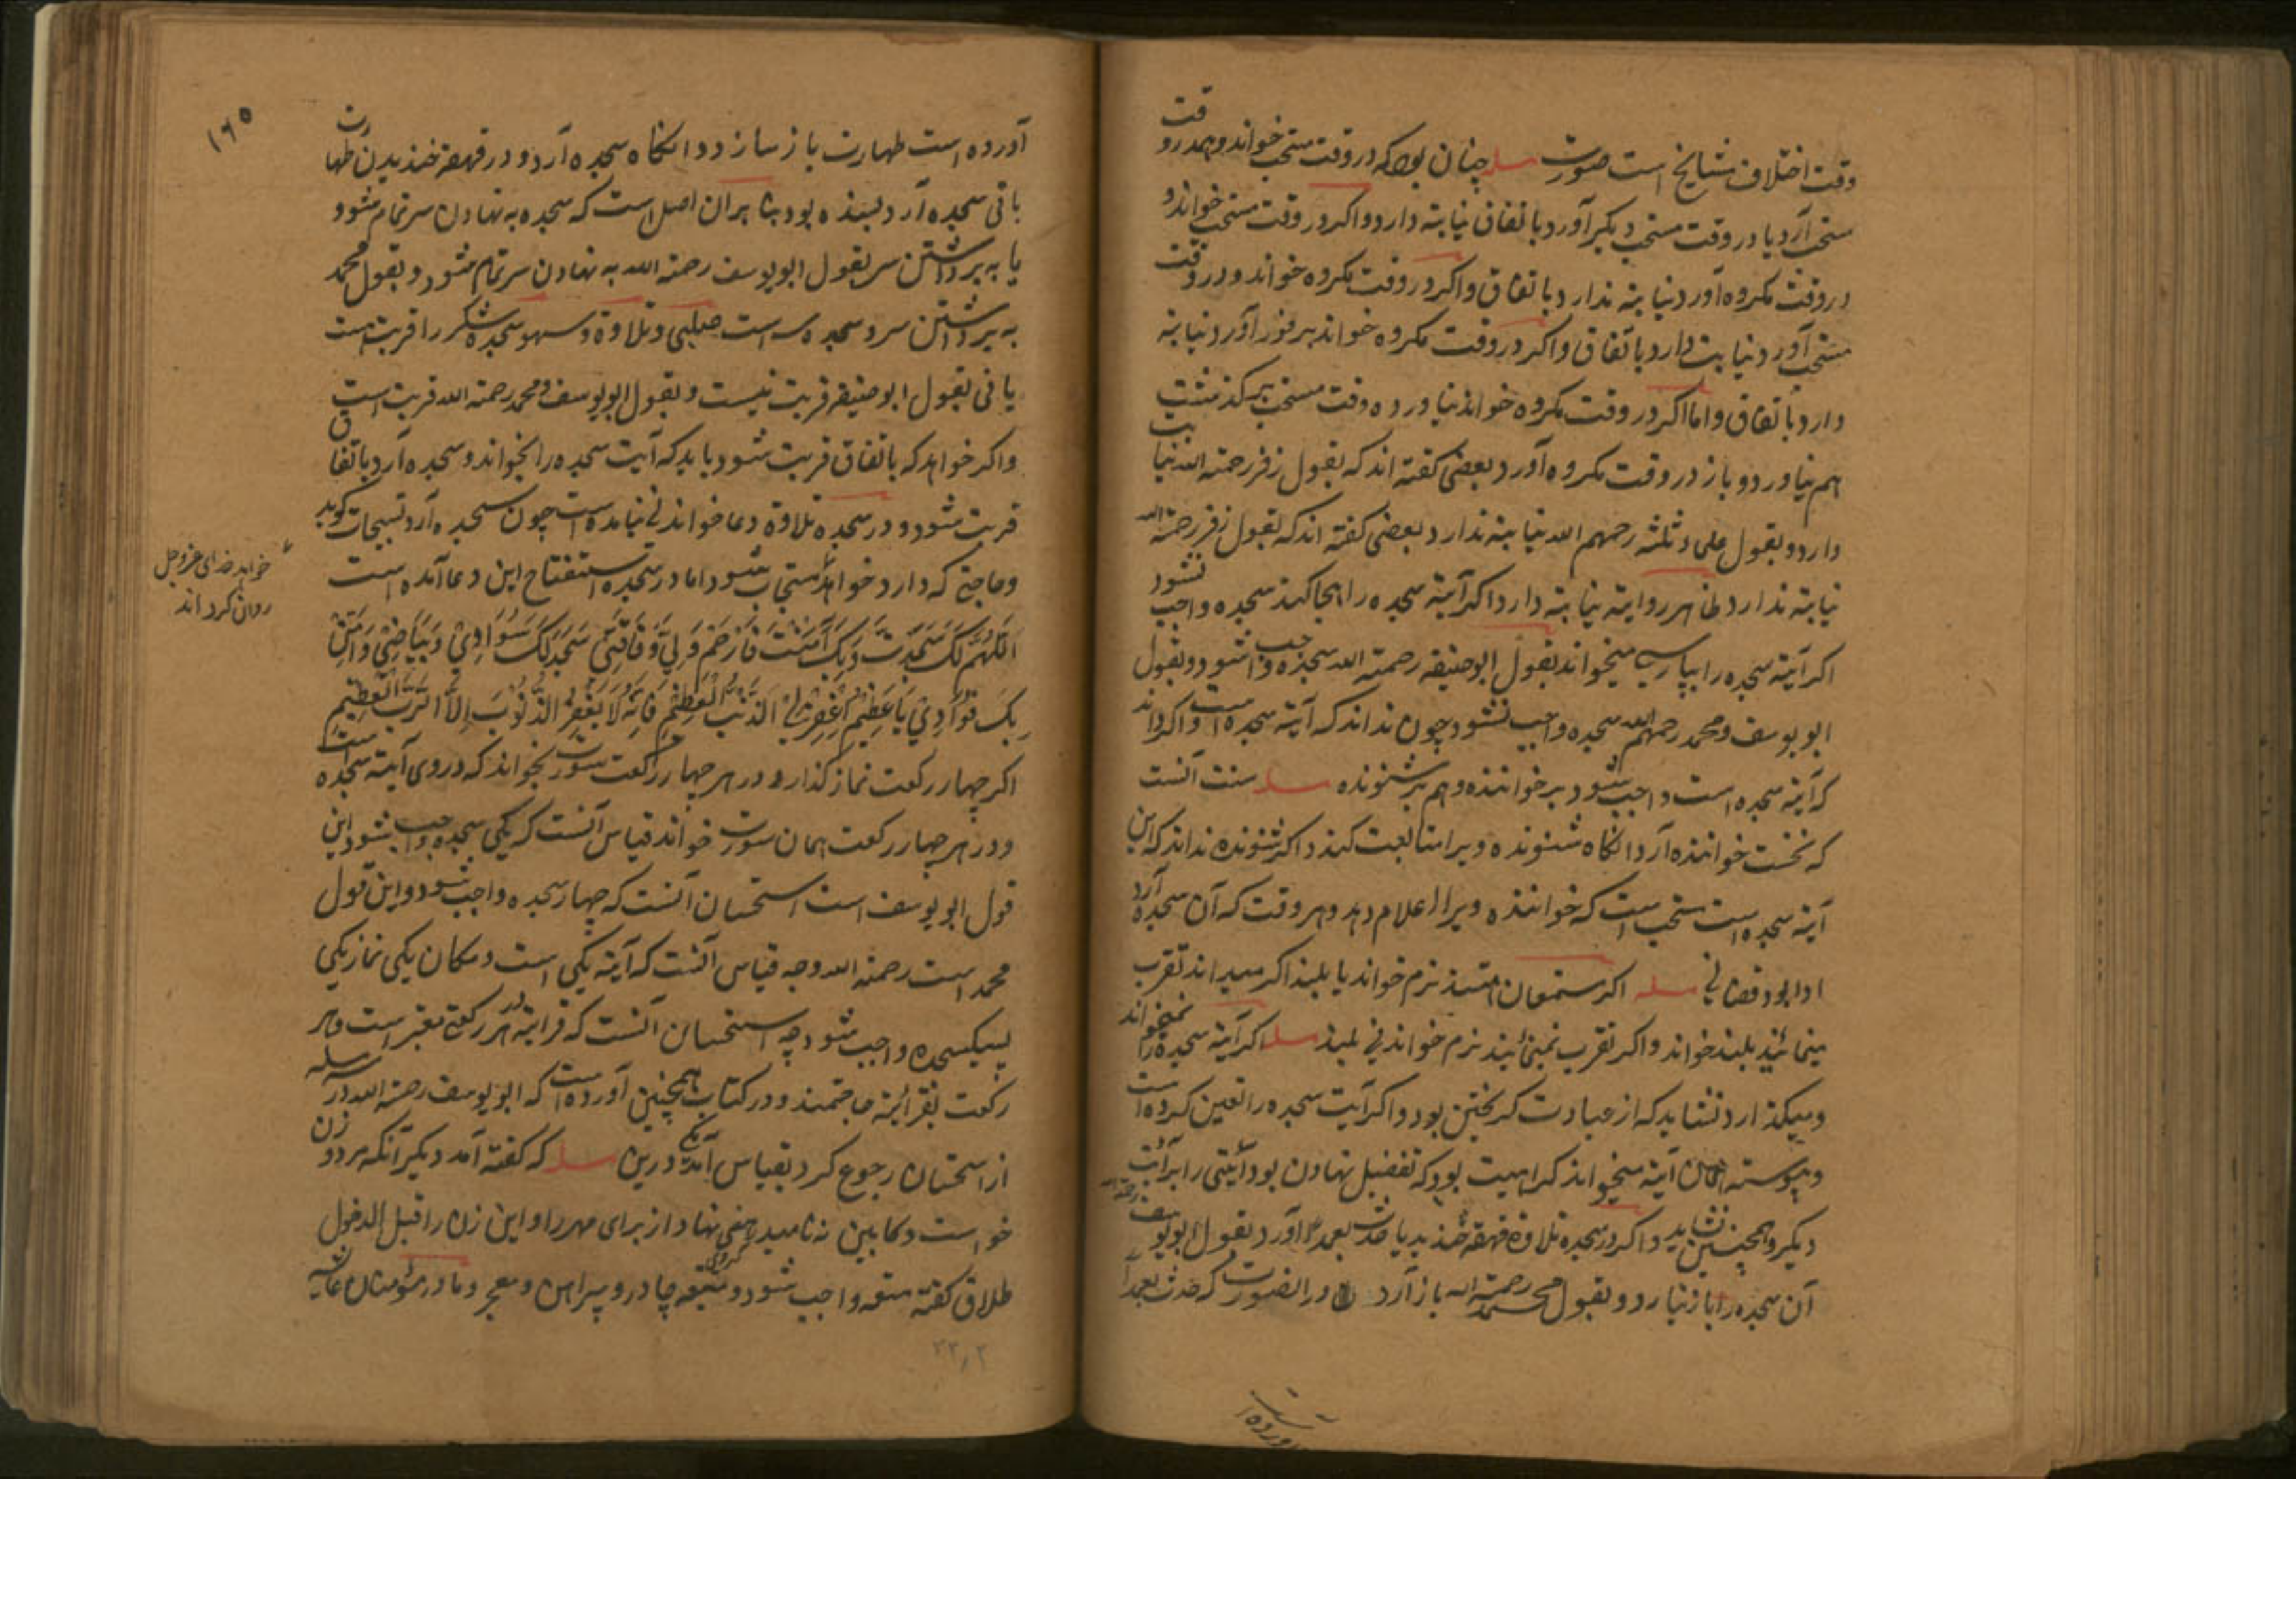 وقت اختلاف مشایخ است صورت مسله چنان بود که در وقت مستحب خواند و هم در وقت
مستحب آرد یا در وقت مستحب دیگر آورد باتفاق نیابتة دارد و اکر در وقت مستحب خواند و
در وقت مکروه آورد نیابتة ندارد باتفاق و اکر در وقت مکروه خواند و در وقت
مستحب آورد نیابت دارد باتفاق و اکر در وقت مکروه خواند بر فور آورد نیابتة
دارد باتفاق و اما اکر در وقت مکروه خواند نیاورد وقت مستحب بکذشت
هم نیاورد و باز در وقت مکروه آورد بعضی کفته اند که بقول زفر رحمة الله نیابت
دارد و بقول علماء ثلثه رحمهم الله نیابتة ندارد بعضی کفته اند که بقول زفر رحمة الله
نیابتة ندارد ظاهر روایتة نیابتة دارد اکر آیتة سجده را هجا کند سجده واجب نشود
اکر آیتة سجده را بپارسی میخواند بقول ابو حنیفه رحمة الله سجده واجب شود و بقول
ابو یوسف و محمد رحمهم الله سجده واجب نشود چون نداند که آیتة سجده است و اکر داند
که آیتة سجده است واجب شود بر خواننده و هم بر شنونده مسله سنت آنست
که نخست خواننده آرد آنکاه شنونده ویرا متابعت کند و اکر شنونده نداند که این
آیتة سجده است مستحب است که خواننده ویرا اعلام دهد و هر وقت که آن سجده آرد
ادا بود قضا نی مسله اکر مستمعان نرم خواند یا بلند اکر میداند تقرب
مینمایند بلند خواند و اکر تقرب نمینمایند نرم خواند نی بلند مسله اکر آیتة سجده را نمیخواند
و میکذارد نشاید که از عبادت کریختن بود و اکر آیت سجده را تعین کرده است
و پیوسته همان آیتة میخواند کراهیت بود که تفضیل نهادن بود آیتی را بر آیت
دیکر و همچنین نشاید و اکر در سجده تلاوة قهقهه خندید یا حدث بعمد آورد بقول ابو یوسف رحمة الله
آن سجده را باز نیارد و بقول محمد رحمة الله باز آرد در آنصورت که حدث بعمد
آورده
١٦٥
آورده است طهارت باز سازد و آنکاه سجده آرد و در قهقهه خندیدن طهارت
باقی سجده آرد بسنده بود بنا بران اصل است که سجده به نهادن سر تمام شود و
یا به برداشتن سر بقول ابو یوسف رحمة الله به نهادن سر تمام شود و بقول محمد
به برداشتن سر و سجده سه است صلبی و تلاوة و سهو سجده شکر را قربت است
یا نی بقول ابو حنیفه قربت نیست و بقول ابو یوسف و محمد رحمة الله قربت است
و اکر خواهد که باتفاق قربت شود باید که آیت سجده را بخواند و سجده آرد باتفاق
قربت شود و در سجده تلاوة دعا خواندنی نیامده است چون سجده آرد تسبیحات کوید
و حاجتی که دارد خواهد مستجاب شود اما در سجده استفتاح این دعا آمده است
خواهد خدای عز و جل
روان کرداند
اَللّٰهُمَّ لَکَ سَجَدْتُ وَبِکَ آمَنْتُ فَارْحَمْ وَفَاقَتِیْ سَجَدَ لَکَ سَوَادِیْ وَبَیَاضِیْ وَآمَنَ
بِکَ فُؤَادِیْ یَا عَظِیْمُ اغْفِرْ لِیْ الذَّنْبَ الْعَظِیْمَ فَاِنَّهُ لَا یَغْفِرُ الذُّنُوْبَ اِلَّا الرَّبُّ الْعَظِیْمِ
اکر چهار رکعت نماز کذارد و در هر چهار رکعت سورت بخواند که در وی آیتة سجده است
و در هر چهار رکعت همان سورت خواند قیاس آنست که یکی سجده واجب شود این
قول ابو یوسف است استحسان آنست که چهار سجده واجب شود و این قول
محمد است رحمة الله وجه قیاس آنست که آیتة یکی است و مکان یکی نماز یکی
پس یکسجده واجب شود وجه استحسان آنست که قرائتة در هر رکعتی معتبر است و هر
رکعت بقرائتة حاجتمند و در کتاب همچنین آورده است که ابو یوسف رحمة الله در سه مسله
از استحسان رجوع کرد بقیاس آمد یکی درین مسله که کفته آمد دیکر آنکه مردو زن
خواست و کابین نه نامید رهنی نهاد از برای مهر را و این زن را قبل الدخول
طلاق کفته متعه واجب شود و متعه چادر و پیراهن و معجر و مادر مؤمنان عایشه
٢٣/٢